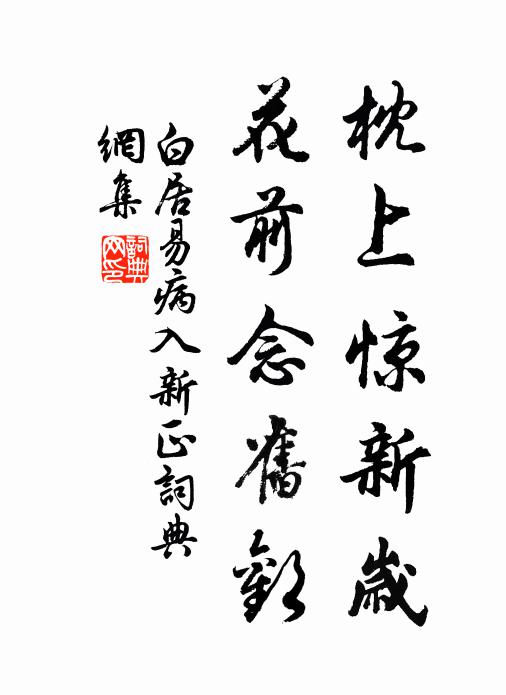 枕上惊新歲
花前念舊歡
白居易病入新正詞典
網集
詞典网印